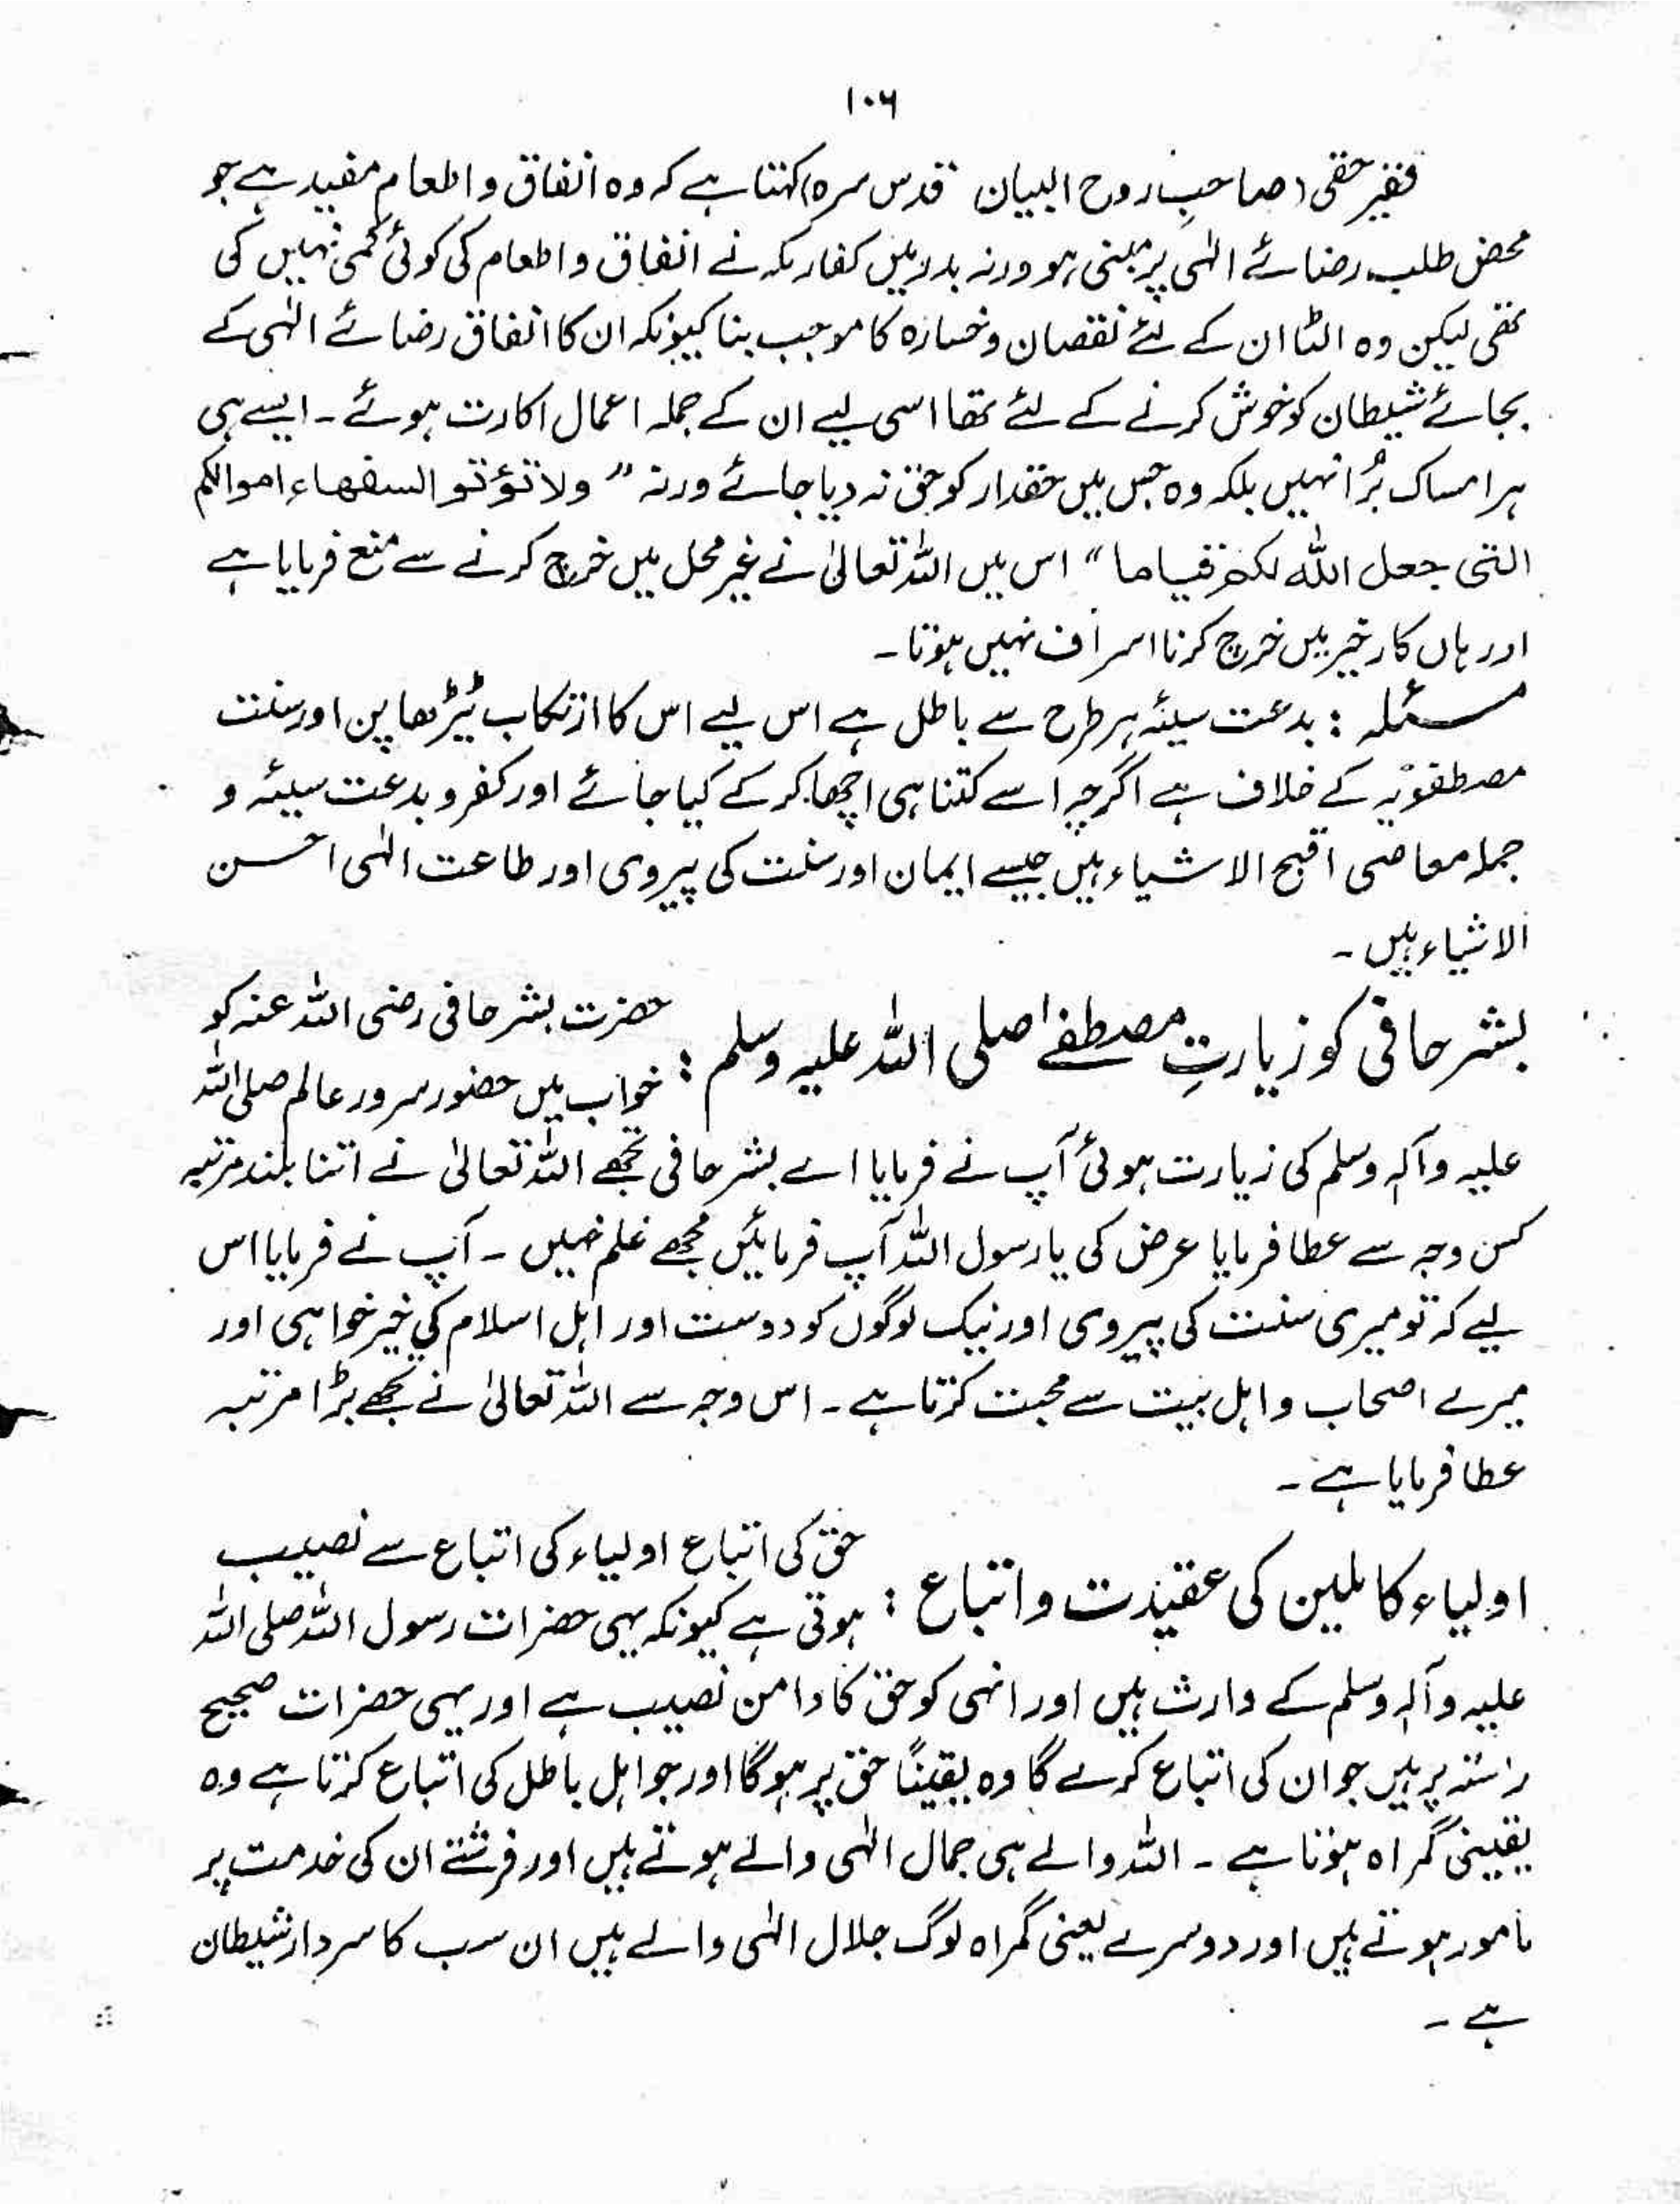 ۱۰۶
فقیر حقی (صاحبِ روح البیان قدس سرہ) کہتا ہے کہ وہ انفاق و اطعام مفید ہے جو
محض طلب رضائے الٰہی پر مبنی ہو ورنہ بدر میں کفار مکہ نے انفاق و اطعام کی کوئی کمی نہیں کی
تھی لیکن وہ الٹا ان کے لئے نقصان و خسارہ کا موجب بنا کیونکہ ان کا انفاق رضائے الٰہی کے
بجائے شیطان کو خوش کرنے کے لئے تھا اسی لیے ان کے جملہ اعمال اکارت ہوئے ۔ ایسے ہی
ہر امساک بُرا نہیں بلکہ وہ جس میں حقدار کو حق نہ دیا جائے ورنہ " ولا تؤتو السفھاء اموالکم
التی جعل اللّٰہ لکم قیاما " اس میں اللہ تعالیٰ نے غیر محل میں خرچ کرنے سے منع فرمایا ہے
اور ہاں کار خیر میں خرچ کرنا اسراف نہیں ہوتا ۔
مسئلہ : بدعت سیئہ ہر طرح سے باطل ہے اس لیے اس کا ارتکاب ٹیڑھا پن اور سنت
مصطفویّہ کے خلاف ہے اگرچہ اسے کتنا ہی اچھا کر کے کیا جائے اور کفر و بدعت سیئہ و
جملہ معاصی اقبح الاشیاء ہیں جیسے ایمان اور سنت کی پیروی اور طاعت الٰہی احسن
الاشیاء ہیں ۔
بشر حافی کو زیارتِ مصطفےٰ صلی اللہ علیہ وسلم : حضرت بشر حافی رضی اللہ عنہ کو
خواب میں حضور سرور عالم صلی اللہ
علیہ وآلہ وسلم کی زیارت ہوئی آپ نے فرمایا اے بشر حافی تجھے اللہ تعالیٰ نے اتنا بلند مرتبہ
کس وجہ سے عطا فرمایا عرض کی یا رسول اللہ آپ فرمائیں مجھے علم نہیں ۔ آپ نے فرمایا اس
لیے کہ تو میری سنت کی پیروی اور نیک لوگوں کو دوست اور اہل اسلام کی خیر خواہی اور
میرے اصحاب و اہل بیت سے محبت کرتا ہے ۔ اس وجہ سے اللہ تعالیٰ نے تجھے بڑا مرتبہ
عطا فرمایا ہے ۔
اولیاء کاملین کی عقیدت و اتباع : حق کی اتباع اولیاء کی اتباع سے نصیب
ہوتی ہے کیونکہ یہی حضرات رسول اللہ صلی اللہ
علیہ وآلہ وسلم کے وارث ہیں اور انہی کو حق کا دامن نصیب ہے اور یہی حضرات صحیح
راستہ پر ہیں جو ان کی اتباع کرے گا وہ یقیناً حق پر ہوگا اور جو اہل باطل کی اتباع کرتا ہے وہ
یقینی گمراہ ہوتا ہے ۔ اللہ والے ہی جمال الٰہی والے ہوتے ہیں اور فرشتے ان کی خدمت پر
مامور ہوتے ہیں اور دوسرے یعنی گمراہ لوگ جلال الٰہی والے ہیں ان سب کا سردار شیطان
ہے ۔